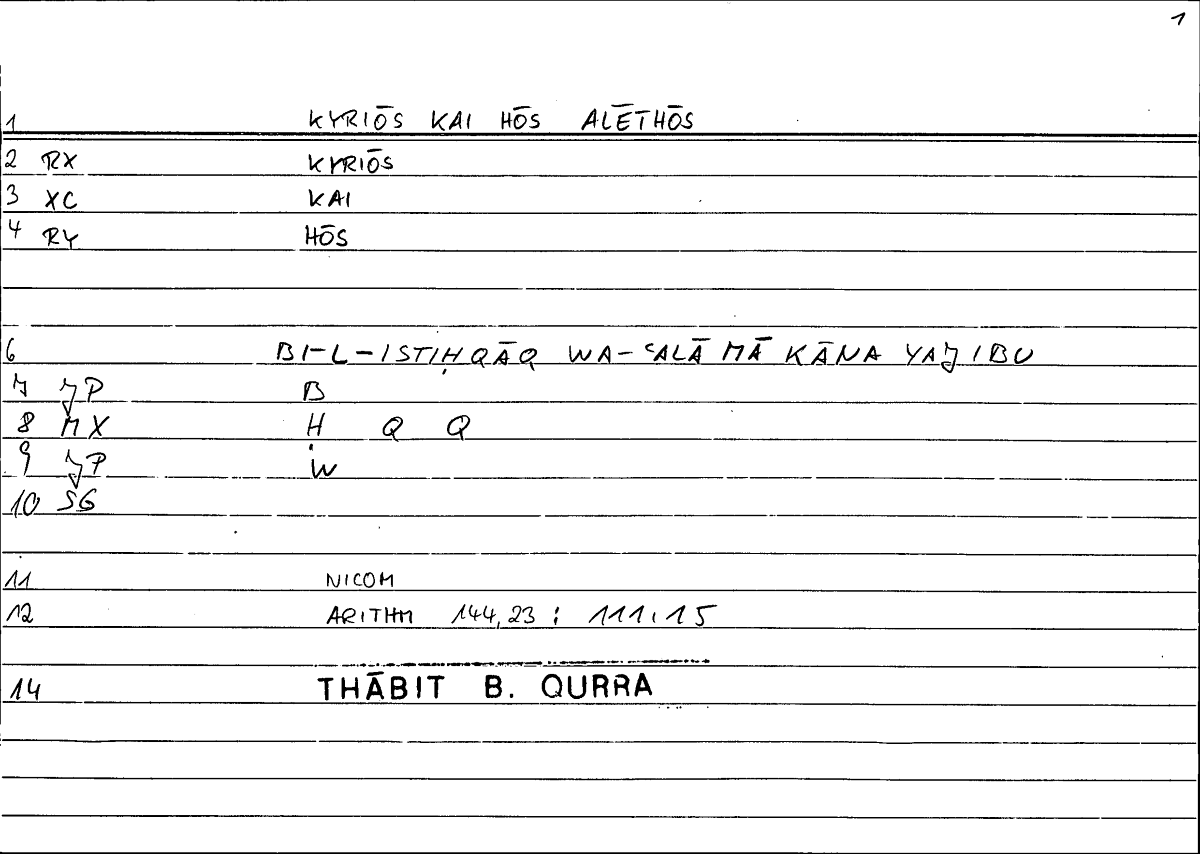 1
1 KYRIŌS KAI HŌS ALĒTHŌS
2 RX KYRIŌS
3 XC KAI
4 RY HŌS
6 BI-L-ISTIḤQĀQ WA-ʿALĀ MĀ KĀNA YAJIBU
7 JP B
8 MX Ḥ Q Q
9 JP W
10 SG
11 NICOM
12 ARITHM 144,23 ; 111,15
14 THĀBIT B. QURRA